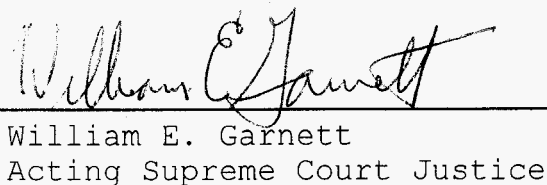 William E. Garnett
William E. Garnett
Acting Supreme Court Justice